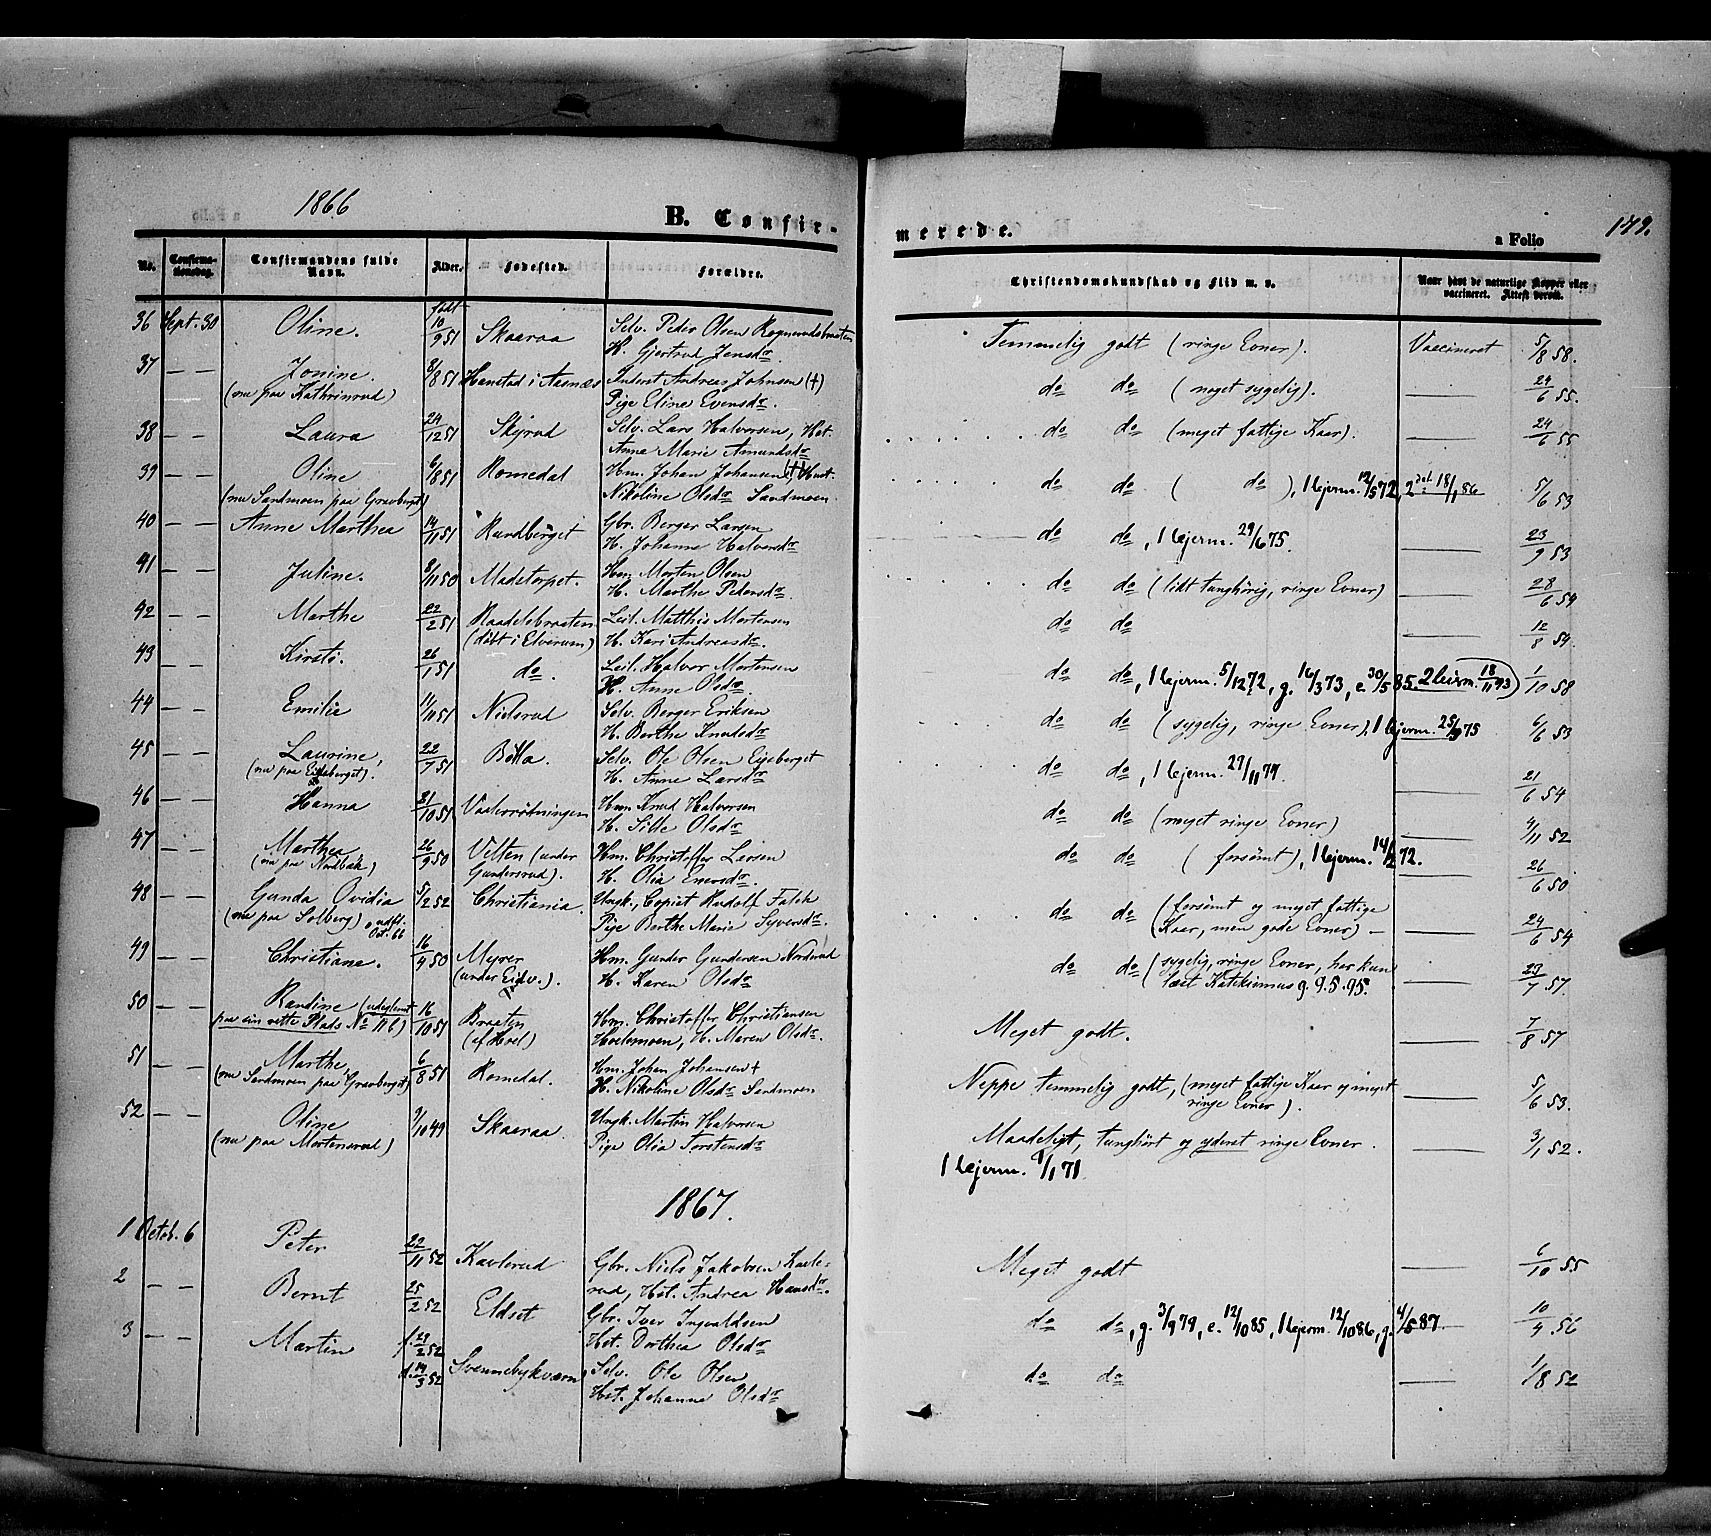 1866
B. Confir-
merede.
a Folio
179.
No.
Confirma-
tionsdag.
Confirmandens fulde
Navn.
Alder.
Fødested.
Forældre.
Christendomskundskab og Flid m. v.
Naar havt de naturlige Kopper eller
vaccineret. Attest derom.
36 Sept. 30 Oline. født 10/9 51 Skaaraa Selv. Peder Olsen
H. Gjertrud Jensdr
Temmelig godt (ringe Evner). Vaccineret 5/8 58.
37 — — Jonine. 8/8 51 Hanstad i Aasnæs Inderst Andreas Johnsen (†)
(nu paa Kathrinrud) Pige Eline Evensdr.
do do (noget sygelig). — 24/6 55.
38 — — Laura 24/12 51 Skyrud Selv. Lars Halvorsen, Hst.
Anne Marie Amundsdr
do do (meget fattige Kaar). — 24/6 55
39 — — Oline 6/8 51 Romedal Hm. Johan Johansen (†) Hust.
(nu Sandmoen paa Gravberget) Nikoline Olsdr Sandmoen
do do ( do ), 1 lejerm. 12/5 72, 2det 18/1 86 5/6 53
40 — — Anne Marthea 14/11 51 Rundberget Gbr. Berger Larsen
H. Johanne Halvorsdr
do do, 1 lejerm. 29/6 75. — 23/9 53
41 — — Juline. 8/11 50 Madstorpet. Hm. Morten Olsen
H. Marthe Pedersdr.
do do (lidt tunghörig, ringe Evner) — 28/6 54
42 — — Marthe 22/2 51 Raadelsbraaten Leil. Matthis Mortensen
(döbt i Elverum) H. Kari Andreasdr.
do do — 12/8 54.
43 — — Kirsti. 26/1 51 do. Leil. Halvor Mortensen
H. Anne Olsdr.
do do, 1 lejerm. 5/12 72, g. 16/3 73, e. 30/5 85. 2 leierm. 18/11 93 1/10 58
44 — — Emilie 1/11 51 Nielsrud Selv. Berger Eriksen
H. Berthe Knudsdr
do do (sygelig, ringe Evner), 1 lejerm. 25/9 75 6/6 53
45 — — Laurine, 22/7 51 Bölla. Selv. Ole Olsen Eggeberget
(nu paa Eggeberget). H. Anne Larsdr
do do, 1 lejerm. 27/11 77. — 21/6 54
46 — — Hanna 21/10 51 Vaalerrötningen Hm. Knud Halvorsen
H. Sille Olsdr.
do do (meget ringe Evner) — 4/11 52
47 — — Marthea 26/9 50 Velten (under Hm. Christoffer Larsen
(nu paa Nordbak) Gundersrud). H. Olia Enersdr.
do do (forsömt), 1 lejerm. 14/2 72. — 26/6 50
48 — — Gunda Ovidia 5/2 52 Christiania. Ungk., Copist Rudolf Falch
(nu paa Solberg) udfl. Oct. 66 Pige Berthe Marie Syversdr.
do do (forsömt og meget fattige
Kaar, men gode Evner) — — 24/6 54
49 — — Christiane. 16/9 50 Myrer Hm. Gunder Gundersen Norderud
(under Eidv.). H. Karen Olsdr
do do (sygelig, ringe Evner, har kun
læst Katekismus g. 9.5.95. — 23/7 57.
50 — — Randine (udeglemt 16/10 51 Braaten Hm. Christoffer Christiansen
paa sin rette Plads No 11 b) (af Hoel) Hoelsmoen, H. Maren Olsdr.
Meget godt. — 7/8 57
51 — — Marthe, 6/8 51 Romedal. Hm. Johan Johansen †
(nu Sandmoen paa Gravberget) H. Nikoline Olsdr Sandmoen
Neppe temmelig godt, (meget fattige Kaar og meget
ringe Evner). — 5/6 53.
52 — — Oline 9/10 49 Skaaraa. Ungk. Martin Halvorsen
(nu paa Mortensrud) Pige Olia Torstensdr
Maadeligt, tunghört og yderst ringe Evner. — 3/1 52.
1 lejerm. 8/1 71.
1867.
1 Octob. 6 Peter 22/11 52 Kavlerud Gbr. Niels Jakobsen Kavle-
rud, Hst. Andrea Hansdr.
Meget godt — 6/10 55
2 — — Bernt 25/2 52 Eldset Gbr. Iver Ingvaldsen
Hst. Dorthea Olsdr
do do, g. 3/9 79, e. 12/10 85, 1 lejerm. 12/10 86, g. 4/5 87 — 10/9 56
3 — — Martin f. 23/2 52 Svennebykværn Selv. Ole Olsen
d. 14/3 52 Hst. Johanne Olsdr
do do — 1/8 52